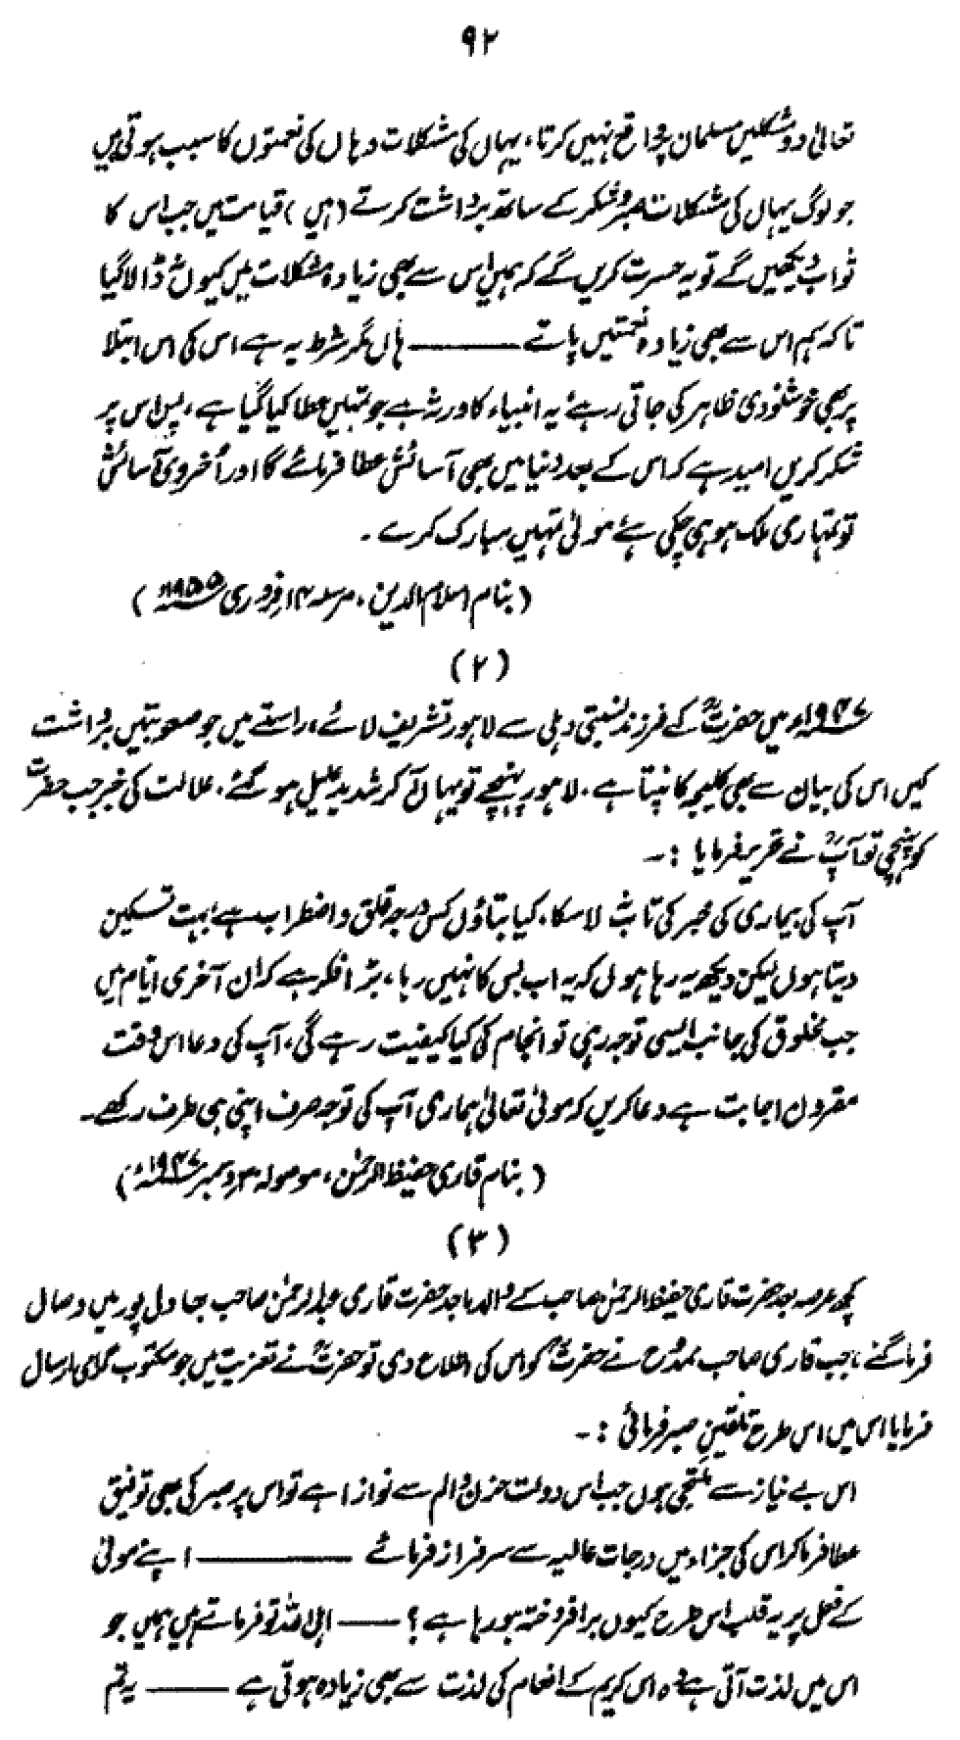 ۹۲
تعالیٰ دو مشکلیں مسلمان پر واقع نہیں کرتا، یہاں کی مشکلات وہاں کی نعمتوں کا سبب ہوتی ہیں
جو لوگ یہاں کی مشکلات صبر و شکر کے ساتھ برداشت کرتے (ہیں) قیامت میں جب اس کا
ثواب دیکھیں گے تو یہ حسرت کریں گے کہ ہمیں اس سے بھی زیادہ مشکلات میں کیوں نہ ڈالا گیا
تاکہ ہم اس سے بھی زیادہ نعمتیں پاتے ——— ہاں مگر شرط یہ ہے اس کی اس ابتلا
پر بھی خوشنودی ظاہر کی جاتی رہے یہ انبیاء کا ورثہ ہے جو تمہیں عطا کیا گیا ہے، پس اس پر
شکر کریں امید ہے کہ اس کے بعد دنیا میں بھی آسائش عطا فرمائے گا اور اُخروی آسائش
تو تمہاری ملک ہو ہی چکی ہے مولیٰ تمہیں مبارک کرے۔
(بنام اسلام الدین، مرسلہ ۱۴ فروری ۱۹۵۵ء)
(۲)
۱۹۴۷ء میں حضرتؒ کے فرزند نسبتی دہلی سے لاہور تشریف لائے، راستے میں جو صعوبتیں برداشت
کیں اس کی بیان سے بھی کلیجہ کانپتا ہے، لاہور پہنچے تو یہاں آ کر شدید علیل ہو گئے، علالت کی خبر جب حضرت
کو پہنچی تو آپؒ نے تحریر فرمایا :۔
آپ کی بیماری کی خبر کی تاب نہ لا سکا، کیا بتاؤں کس درجہ قلق و اضطراب ہے بہت تسکین
دیتا ہوں لیکن دیکھ یہ رہا ہوں کہ یہ اب بس کا نہیں رہا، بڑا فکر ہے کہ ان آخری ایام میں
جب مخلوق کی جانب ایسی توجہ رہی تو انجام کی کیا کیفیت رہے گی، آپ کی دعا اس وقت
مقرون اجابت ہے دعا کریں کہ مولیٰ تعالیٰ ہماری آپ کی توجہ صرف اپنی ہی طرف رکھے۔
(بنام قاری حفیظ الرحمٰن، موصولہ ۳ دسمبر ۱۹۴۷ء)
(۳)
کچھ عرصہ بعد حضرت قاری حفیظ الرحمٰن صاحب کے والد ماجد حضرت قاری عبدالرحمٰن صاحب بہاول پور میں وصال
فرما گئے، جب قاری صاحب ممدوح نے حضرتؒ کو اس کی اطلاع دی تو حضرتؒ نے تعزیت میں جو مکتوب گرامی ارسال
فرمایا اس میں اس طرح تلقینِ صبر فرمائی :۔
اس بے نیاز سے ملتجی ہوں جب اس دولت حزن و الم سے نوازا ہے تو اس پر صبر کی بھی توفیق
عطا فرما کر اس کی جزاء میں درجات عالیہ سے سرفراز فرمائے ——— اپنے مولیٰ
کے فعل پر یہ قلب اس طرح کیوں برافروختہ ہو رہا ہے؟ —— اہل اللہ تو فرماتے ہیں ہمیں جو
اس میں لذت آتی ہے وہ اس کریم کے انعام کی لذت سے بھی زیادہ ہوتی ہے —— یہ تم